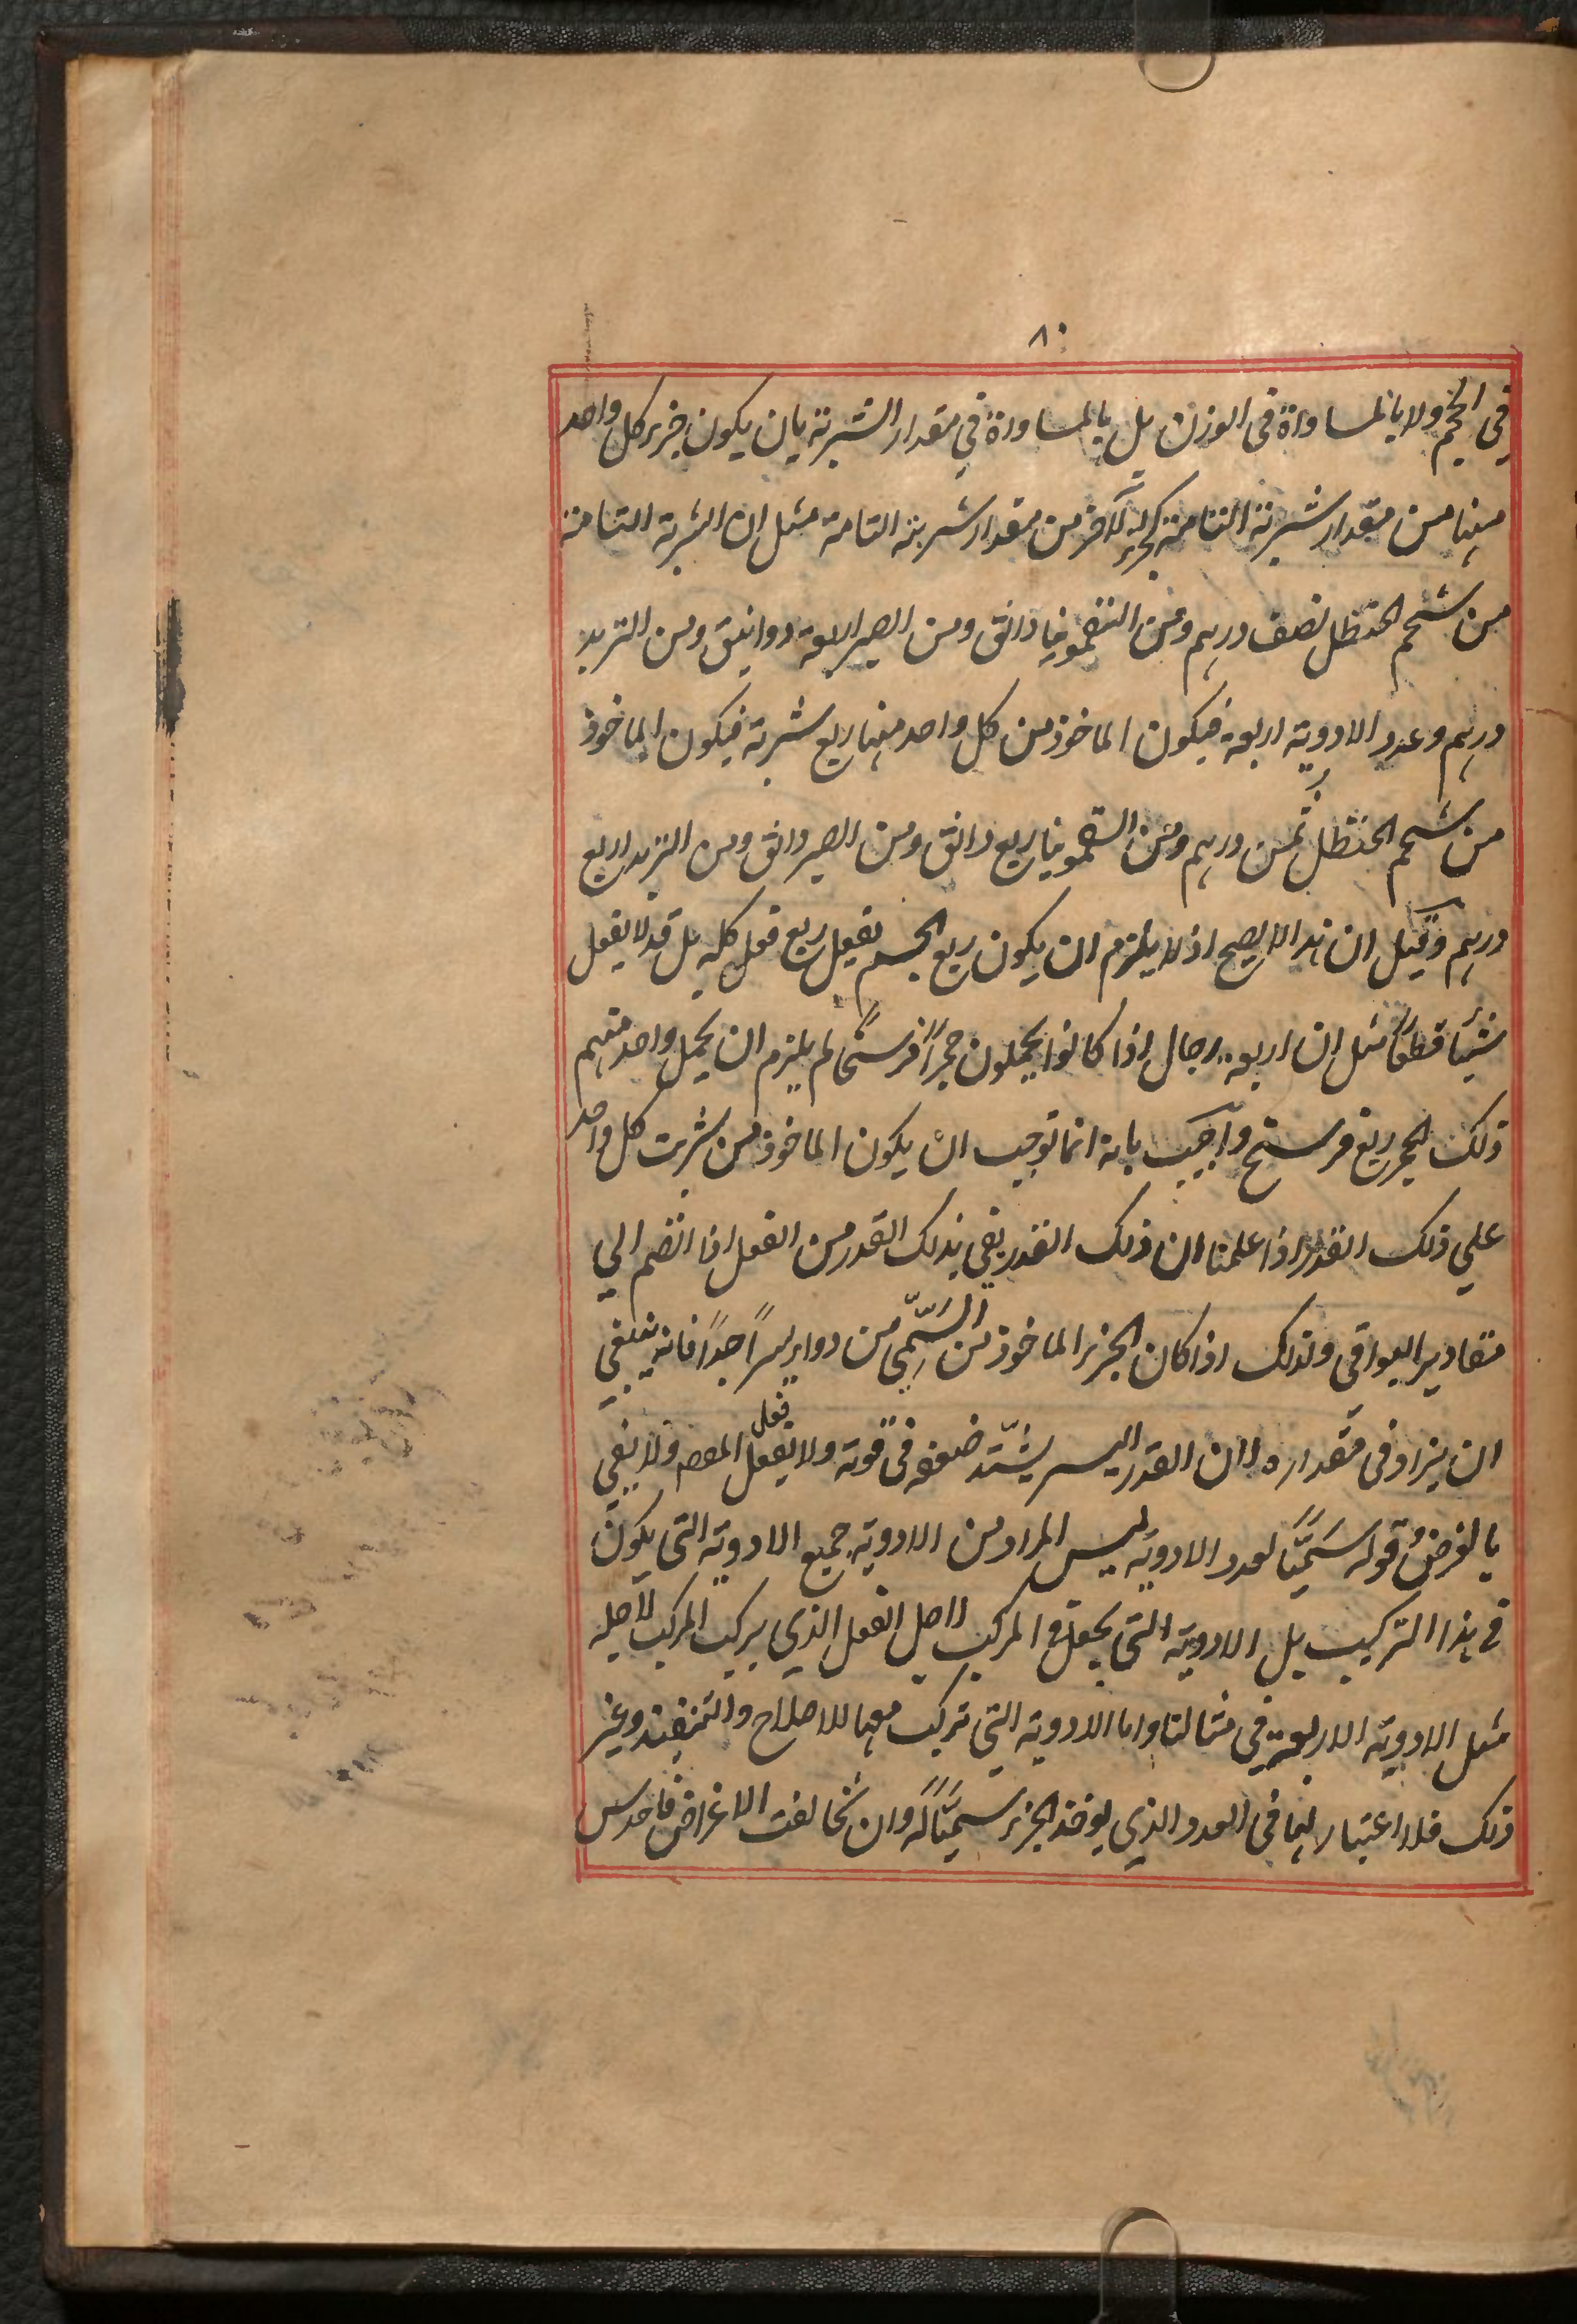 ٨٠
في الحجم ولا بالمساواة في الوزن بل بالمساواة في مقدار الشربة بان يكون جزء كل واحد
منها من مقدار شربته التامة كجزء لآخر من مقدار شربته التامة مثل ان الشربة التامة
من شحم الحنظل نصف درهم ومن السقمونيا دانق ومن الصبر اربعة دوانيق ومن التربد
درهم وعدد الادوية اربعة فيكون الماخوذ من كل واحد منها ربع شربة فيكون الماخوذ
من شحم الحنظل ثمن درهم ومن السقمونيا ربع دانق ومن الصبر دانق ومن التربد ربع
درهم وقيل ان هذا لا يصح اذ لا يلزم ان يكون ربع الجسم يفعل ربع فعل كله بل قد لا يفعل
شيئا قطعاً مثل ان اربعة رجال اذا كانوا يحملون حجراً فرسخاً لم يلزم ان يحمل واحد منهم
ذلك الحجر ربع فرسخ واجيب بانه انما توجب ان يكون الماخوذ من شربت كل واحد
علي ذلك القدر اذا علمنا ان ذلك القدر يفي بذلك القدر من الفعل اذا انضم الي
مقادير البواقي ولذلك اذا كان الجزء الماخوذ من السّمّي من دواء يسراً جداً فانه ينبغي
ان يزاد في مقداره لان القدر اليسر يشتد ضعفه في قوته ولا يفعل فعل المعه ولا يفي
بالغرض قوله سَمِيًّا لعدد الادوية ليس المراد من الادوية جميع الادوية التي يكون
في هذا التركيب بل الادوية التي يجعل في المركب لاصل الفعل الذي يركب المركب لاجله
مثل الادوية الاربعة في مثالنا واما الادوية التي تركب معها للاصلاح والتنفيذ وغير
ذلك فلا اعتبار لها في العدد الذي يوخذ الجزء سميًّا له وان تخالفت الاغراض فاحدس